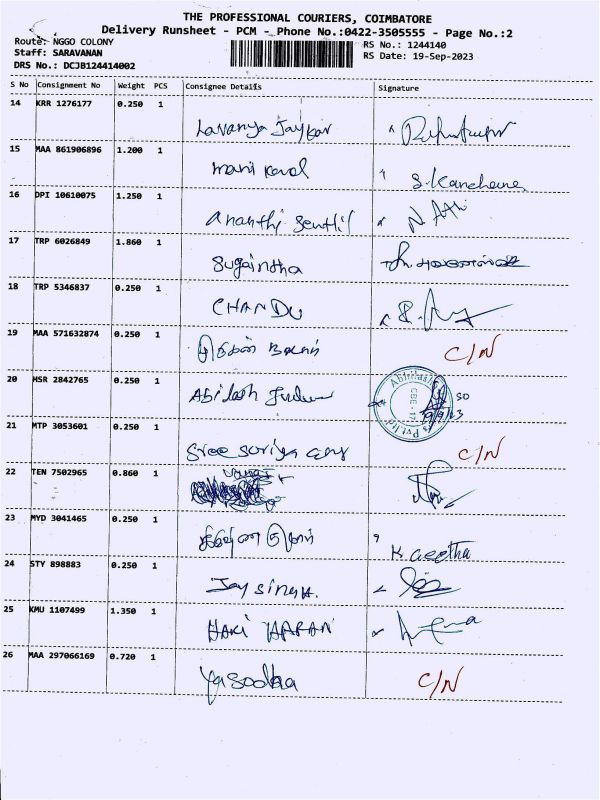 THE PROFESSIONAL COURIERS, COIMBATORE
Delivery Runsheet - PCM - Phone No.:0422-3505555 - Page No.:2
Route: NGGO COLONY
Staff: SARAVANAN
DRS No.: DCJB124414002
RS No.: 1244140
RS Date: 19-Sep-2023
S No Consignment No Weight PCS Consignee Details Signature
14 KRR 1276177 0.250 1
Lavanya Jaykar
15 MAA 861906896 1.200 1
mani
S. Kanchana
16 DPI 10610075 1.250 1
Ananthi Senthil
17 TRP 6026849 1.860 1
Sugaintha
18 TRP 5346837 0.250 1
CHANDU
19 MAA 571632874 0.250 1
C/N
20 HSR 2842765 0.250 1
Abilash
21 MTP 3053601 0.250 1
Sree Soriya
C/N
22 TEN 7502965 0.860 1
23 MYD 3041465 0.250 1
K. Geetha
24 STY 898883 0.250 1
Jay singh.
25 KMU 1107499 1.350 1
HARI HARAN
26 MAA 297066169 0.720 1
Yasodha
C/N